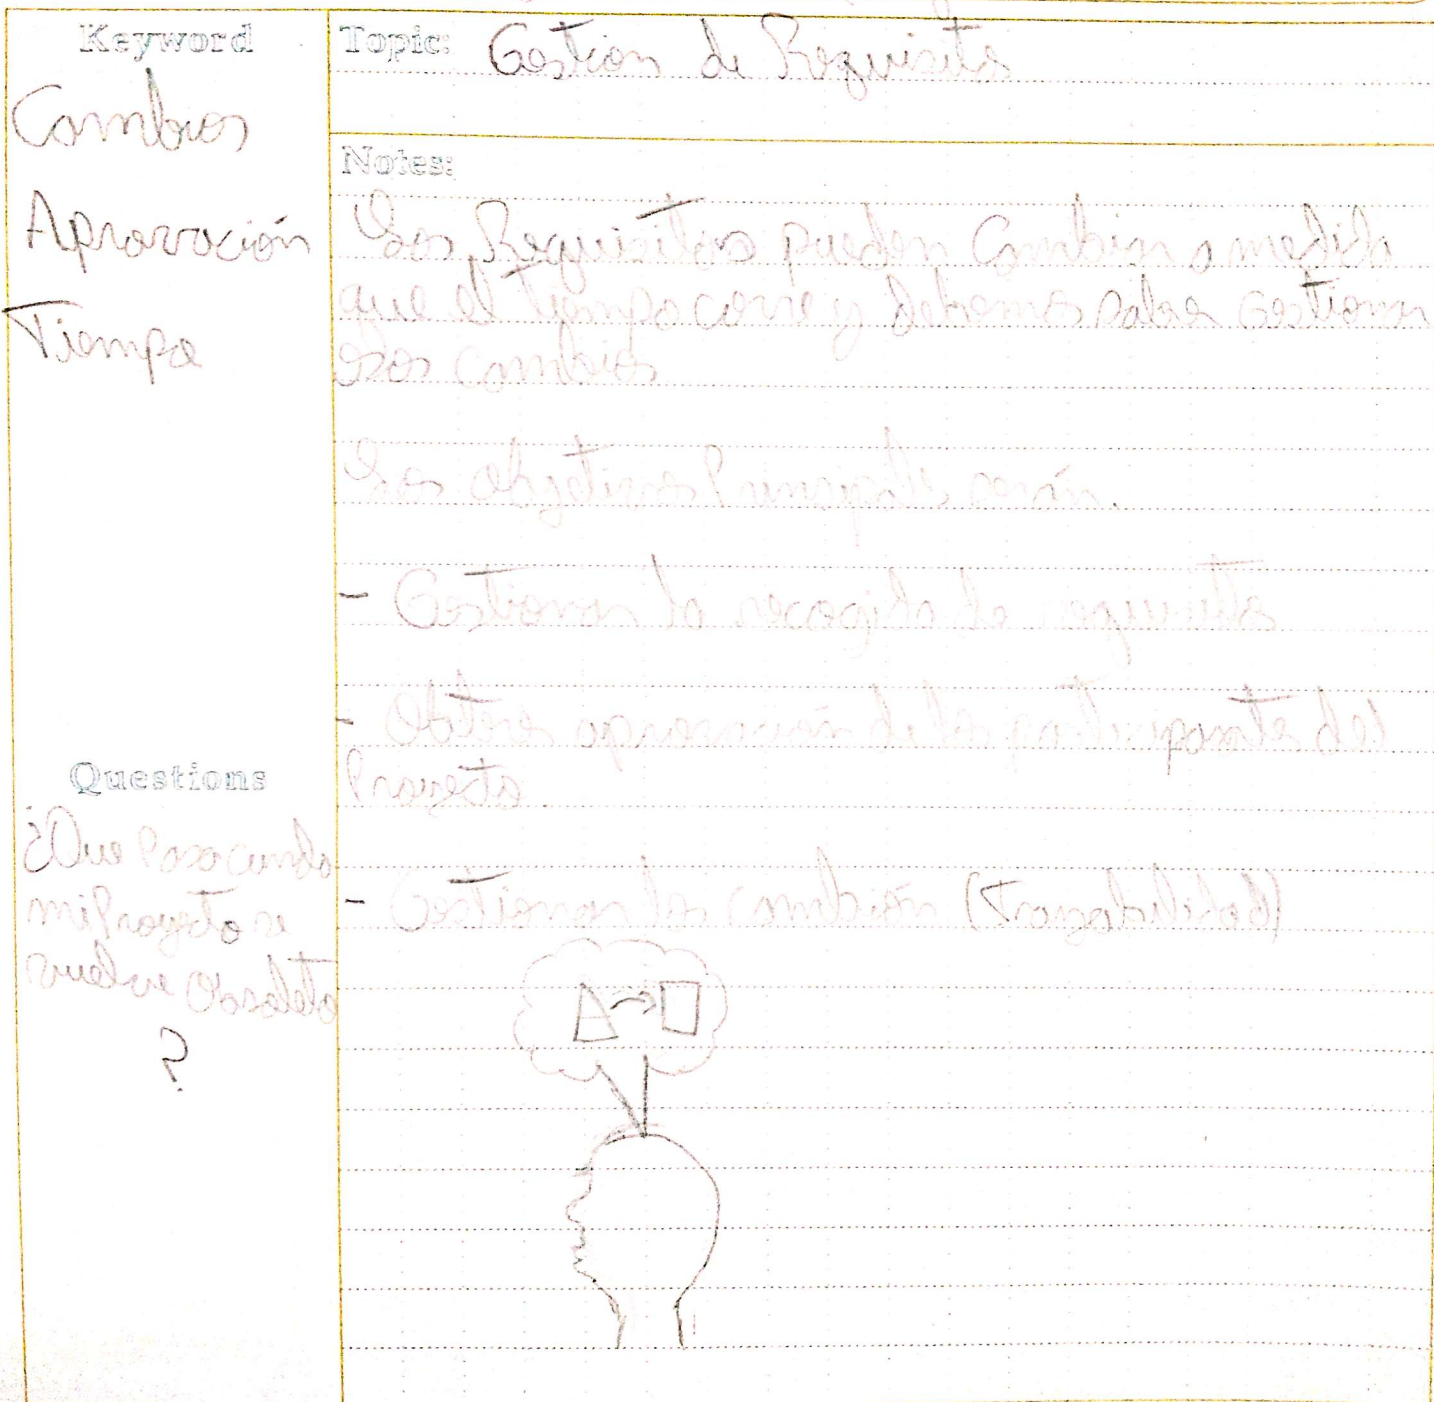 Keyword
Cambios
Aprovación
Tiempo
Questions
¿Que Pasa cuando
mi Proyecto se
vuelve Obsoleto
?
Topic: Gestion de Requisitos
Notes:
Los Requisitos pueden Cambiar a medida
que el tiempo corre y debemos saber Gestionar
esos cambios
Los objetivos Principales serán.
- Gestionar la recogida de requisitos
- Obtener aprovación de los participantes del
Proyecto.
- Gestionar los (Trazabilidad)